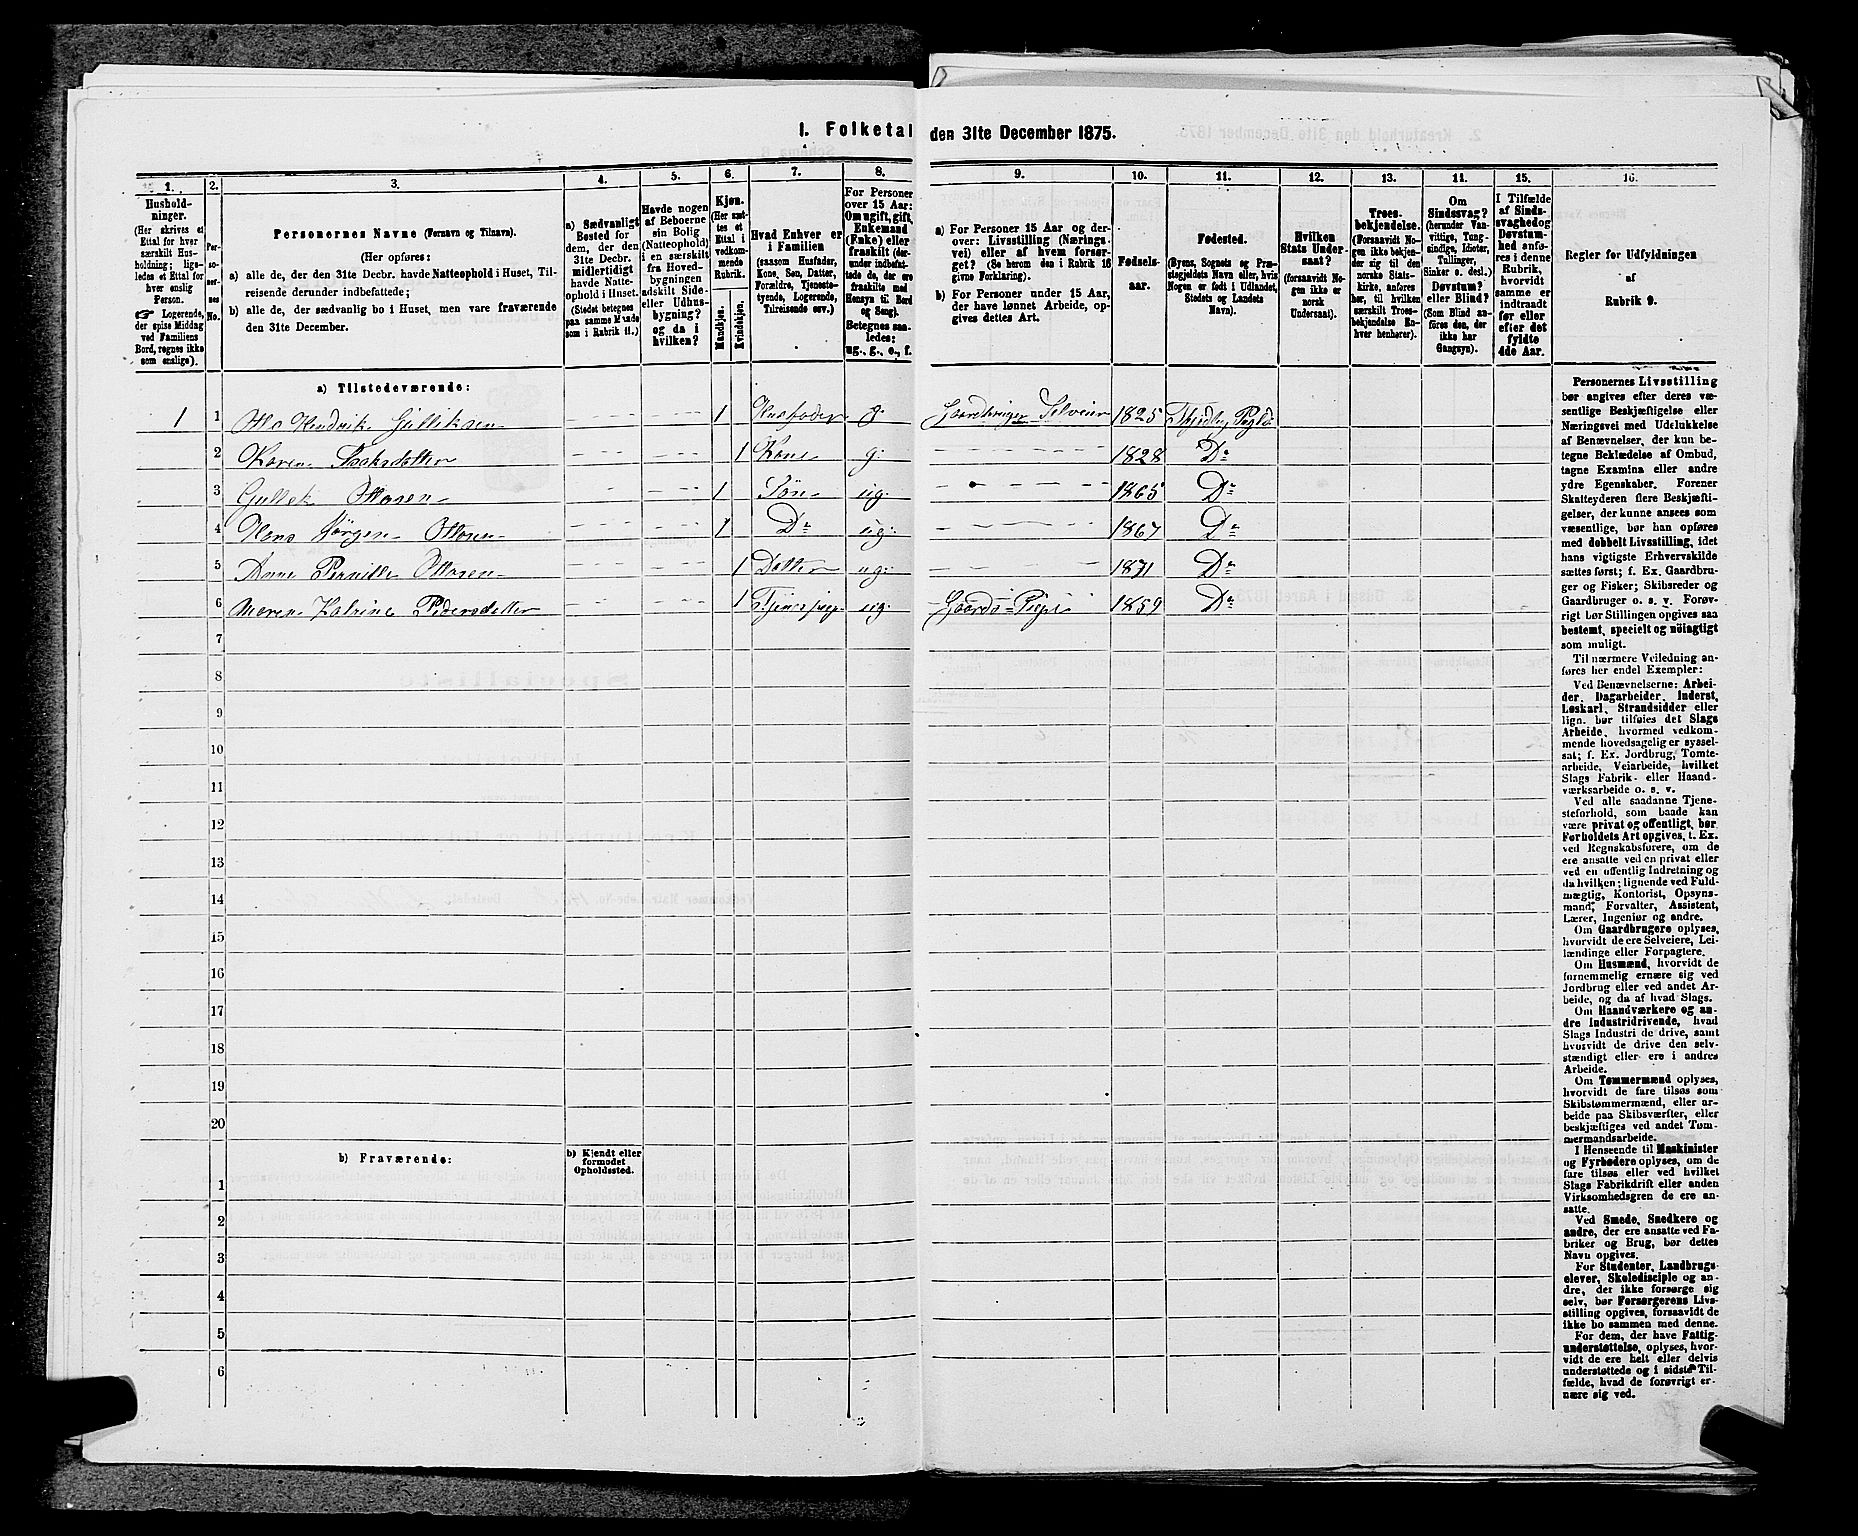 I. Folketal den 31te December 1875.
1.
2.
3.
4.
5.
6.
7.
8.
9.
10.
11.
12.
13.
14.
15.
16.
Hushold-
ninger.
(Her skrives et
Ettal for hver
særskilt Hus-
holdning; lige-
ledes et Ettal for
hver enslig
Person.
☞ Logerende,
der spise Middag
ved Familiens
Bord, regnes ikke
som enslige).
Per-
so-
ner-
nes
No.
Personernes Navne (Fornavn og Tilnavn).
(Her opføres:
a) alle de, der den 31te Decbr. havde Natteophold i Huset, Til-
reisende derunder indbefattede;
b) alle de, der sædvanlig bo i Huset, men vare fraværende
den 31te December.
a) Sædvanligt
Bosted for
dem, der den
31te Decbr.
midlertidigt
havde Natte-
ophold i Huset.
(Stedet betegnes
paa samme Maade
som i Rubrik 11.)
Havde nogen
af Beboerne
sin Bolig
(Natteophold)
i en særskilt
fra Hoved-
bygningen
adskilt Side-
eller Udhus-
bygning?
og da i
hvilken?
Kjøn.
(Her sæt-
tes et
Ettal i
vedkom-
mende
Rubrik.
Mandkjøn.
Kvindekjøn.
Hvad Enhver er
i Familien
(saasom Husfader,
Kone, Søn, Datter,
Forældre, Tjeneste-
tyende, Logerende,
Tilreisende osv.)
For Personer
over 15 Aar:
Om ugift, gift,
Enkemand
(Enke) eller
fraskilt (der-
under indbefat-
tede de, der ere
fraskilte med
Hensyn til Bord
og Seng).
Betegnes saa-
ledes:
ug., g., e., f.
a) For Personer 15 Aar og der-
over: Livsstilling (Nærings-
vei) eller af hvem forsør-
get? (Se herom den i Rubrik 16
givne Forklaring).
b) For Personer under 15 Aar,
der have lønnet Arbeide, op-
gives dettes Art.
Fødsels-
aar.
Fødested.
(Byens, Sognets og Præ-
stegjeldets Navn eller, hvis
Nogen er født i Udlandet,
Stedets og Landets
Navn).
Hvilken
Stats Under-
saat?
(forsaavidt No-
gen ikke er
norsk
Undersaat).
Troes-
bekjendelse.
(Forsaavidt No-
gen ikke bekjen-
der sig til den
norske Stats-
kirke, anføres
her, til hvilken
særskilt Troes-
bekjendelse En-
hver henhører).
Om
Sindssvag?
(herunder Van-
vittige, Tung-
sindige, Idioter,
Sinker o. desl.)
Døvstum?
eller Blind?
(Som Blind an-
føres den, der
ikke har
Gangsyn).
I Tilfælde
af Sinds-
svaghed og
Døvstum-
hed anfø-
res i denne
Rubrik,
hvorvidt
samme er
indtraadt
før eller
efter det
fyldte
4de Aar.
Regler for Udfyldningen
af
Rubrik 9.
a) Tilstedeværende:
1 1 Hendrik Gulleksen 1 Husfader g. Gaardbruger Selveier 1825
2 Karen Isaksdatter 1 Kone g. 1828 Do
3 Gullek Ottosen 1 Søn ug. 1865 Do
4 Hans Jørgen Ottosen 1 Do ug. 1867 Do
5 Anne Pernille Ottosen 1 Datter ug. 1871 Do
6 Maren Katrine Pedersdatter 1 ug. Gaards-Pige 1859 Do
7
8
9
10
11
12
13
14
15
16
17
18
19
20
b) Fraværende:
b) Kjendt eller
formodet
Opholdssted.
1
2
3
4
5
6
Personernes Livsstilling
bør angives efter deres væ-
sentlige Beskjæftigelse eller
Næringsvei med Udelukkelse
af Benævnelser, der kun be-
tegne Beklædelse af Ombud,
tagne Examina eller andre
ydre Egenskaber. Forener
Skatteyderen flere Beskjæfti-
gelser, der kunne ansees som
væsentlige, bør han opføres
med dobbelt Livsstilling, idet
hans vigtigste Erhvervskilde
sættes først; f. Ex. Gaardbru-
ger og Fisker; Skibsreder og
Gaardbruger o. s. v. Forøv-
rigt bør Stillingen opgives saa
bestemt, specielt og nöiagtigt
som muligt.
Til nærmere Veiledning an-
føres her endel Exempler:
Ved Benævnelserne: Arbei-
der, Dagarbeider, Inderst,
Løskarl, Strandsidder eller
lign. bør tilføies det Slags
Arbeide, hvormed vedkom-
mende hovedsagelig er syssel-
sat; f. Ex. Jordbrug, Tomte-
arbeide, Veiarbeide, hvilket
Slags Fabrik- eller Haand-
værksarbeide o. s. v.
Ved alle saadanne Tjene-
steforhold, som baade kan
være privat og offentligt, bør
Forholdets Art opgives, f. Ex.
ved Regnskabsførere, om de
ere ansatte ved en privat eller
ved en offentlig Indretning og
da hvilken; lignende ved Fuld-
mægtig, Kontorist, Opsyns-
mand, Forvalter, Assistent,
Lærer, Ingeniør og andre.
Om Gaardbrugere oplyses,
hvorvidt de ere Selveiere, Lei-
lændinge eller Forpagtere.
Om Husmænd, hvorvidt de
fornemmelig ernære sig ved
Jordbrug eller ved andet Ar-
beide, og da af hvad Slags.
Om Haandværkere og an-
dre Industridrivende, hvad
Slags Industri de drive, samt
hvorvidt de drive den selv-
stændigt eller ere i andres
Arbeide.
Om Tømmermænd oplyses,
hvorvidt de fare tilsøs som
Skibstømmermænd, eller ar-
beide paa Skibsværfter, eller
beskjæftiges ved andet Tøm-
mermandsarbeide.
I Henseende til Maskinister
og Fyrbødere oplyses, om de
fare tilsøs eller ved hvilket
Slags Fabrikdrift eller anden
Virksomhedsgren de ere an-
satte.
Ved Smede, Snedkere og
andre, der ere ansatte ved Fa-
briker og Brug, bør dettes
Navn opgives.
For Studenter, Landbrugs-
elever, Skoledisciple og an-
dre, der ikke forsørge sig
selv, bør Forsørgerens Livs-
stilling opgives, forsaavidt de
ikke bo sammen med denne.
For dem, der have Fattig-
understøttelse, oplyses, hvor-
vidt de ere helt eller delvis
understøttede og i sidste Til-
fælde, hvad de forøvrigt er-
nære sig ved.